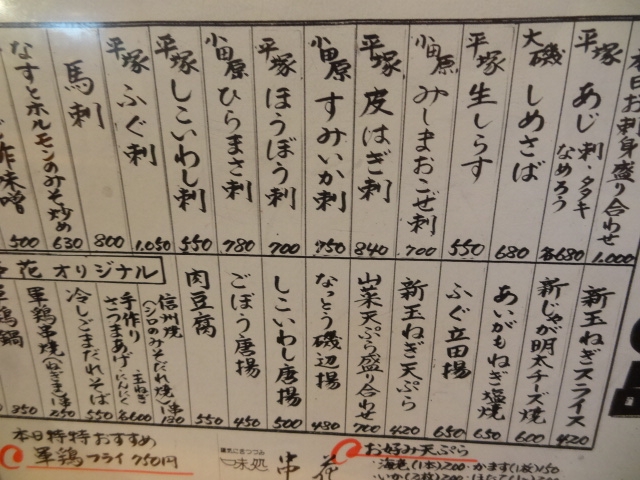 本日お刺身盛り合わせ 1,000
平塚 あじ刺・タタキ なめろう 各680
大磯 しめさば 680
平塚 生しらす 550
小田原 みしまおこぜ刺 700
平塚 皮はぎ刺 840
小田原 すみいか刺 750
平塚 ほうぼう刺 700
小田原 ひらまさ刺 780
平塚 しこいわし刺 550
平塚 ふぐ刺 1,050
馬刺 800
なすとホルモンのみそ炒め 630
酢味噌 500
新玉ねぎスライス 420
新じゃが明太チーズ焼 600
あいがもねぎ塩焼 650
ふぐ立田揚 650
新玉ねぎ天ぷら 420
山菜天ぷら盛り合わせ 700
なっとう磯辺揚 480
しこいわし唐揚 500
ごぼう唐揚 450
肉豆腐 550
花オリジナル
信州焼(シロのみそだれ焼)1串 180
手作りさつまあげ・玉ねぎ・にんにく 各600
冷しごまだれそば 550
軍鶏串焼(ねぎま)1串 250
軍鶏鍋 350
本日特特おすすめ
軍鶏フライ 750円
味処 串花
お好み天ぷら
・海老(1本)200・かます(1枚)150